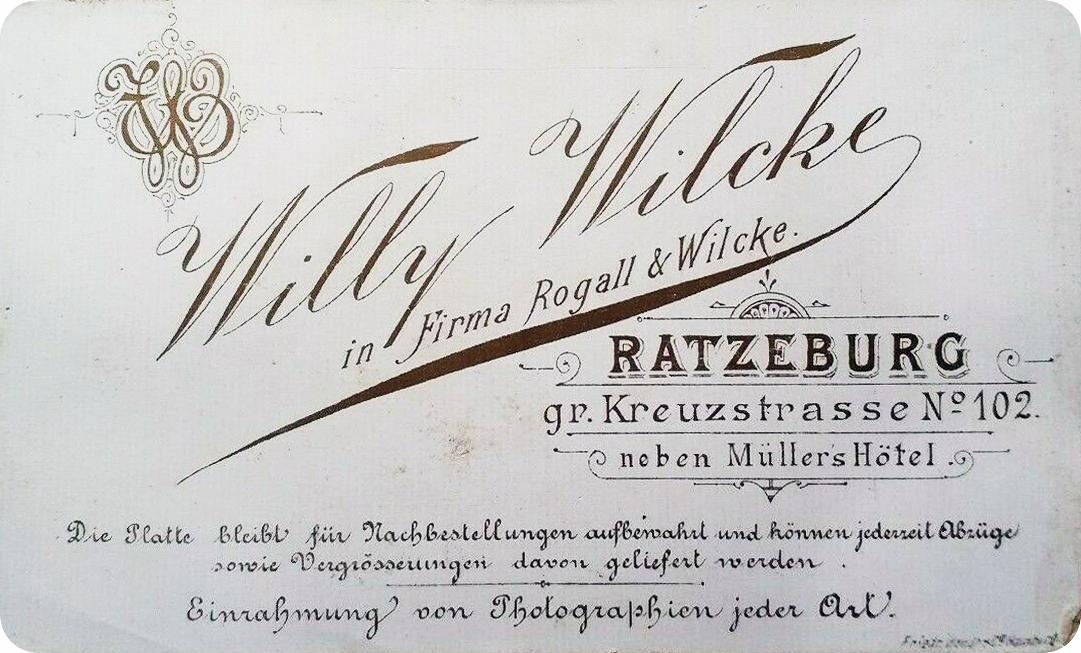 WW
Willy Wilcke
in Firma Rogall & Wilcke.
RATZEBURG
gr. Kreuzstrasse Nº 102.
neben Müllers Hötel.
Die Platte bleibt für Nachbestellungen aufbewahrt und können jederzeit Abzüge
sowie Vergrösserungen davon geliefert werden.
Einrahmung von Photographien jeder Art.